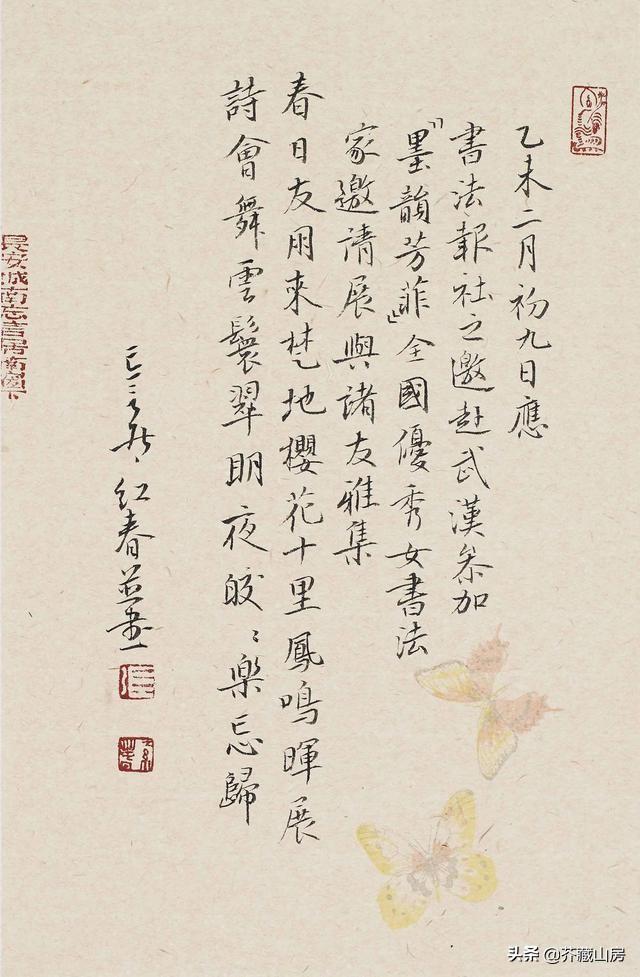 乙未二月初九日應
書法報社之邀赴武漢叅加
"墨韻芳菲"全國優秀女書法
家邀請展與諸友雅集
春日友朋来楚地櫻花十里鳳鳴暉展
詩會舞雲鬟翠眀夜皎〻樂忘歸
红春並書
長安城南忘言居南窗下
头条 @芥藏山房